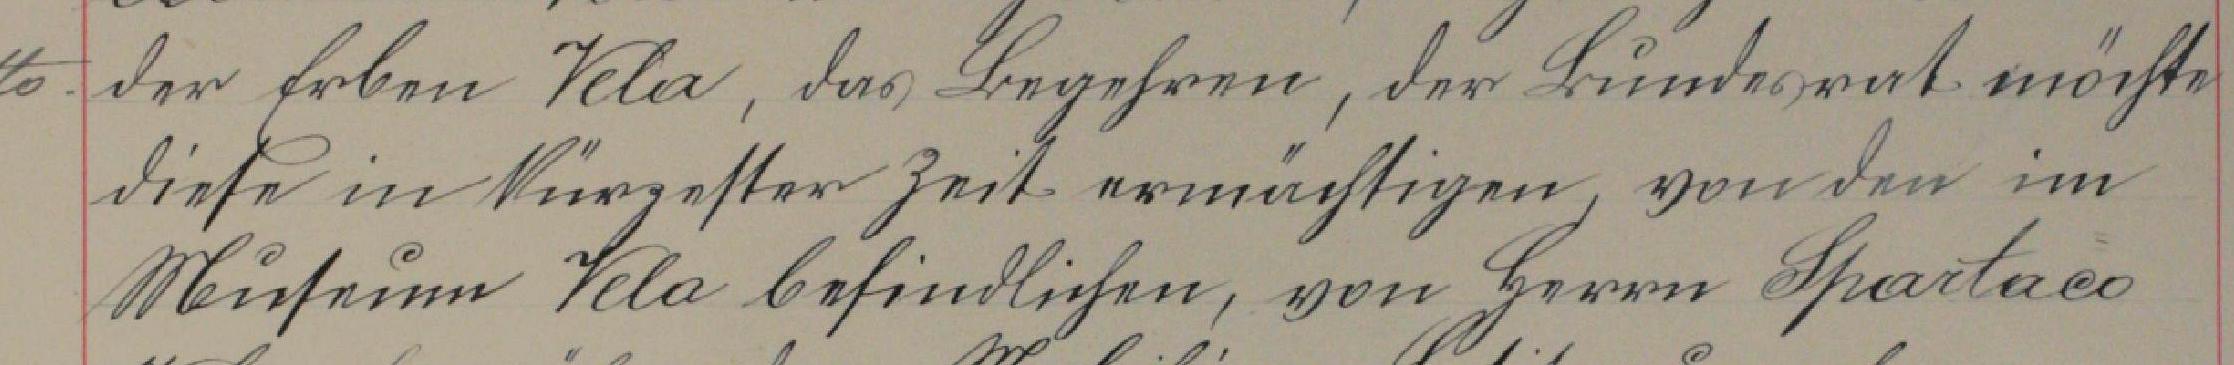 der Erben Vela, das Begehren, der Bundesrat möchte
diese in kürzester Zeit ermächtigen, von den im
Museum Vela befindlichen, von Herrn Spartaco